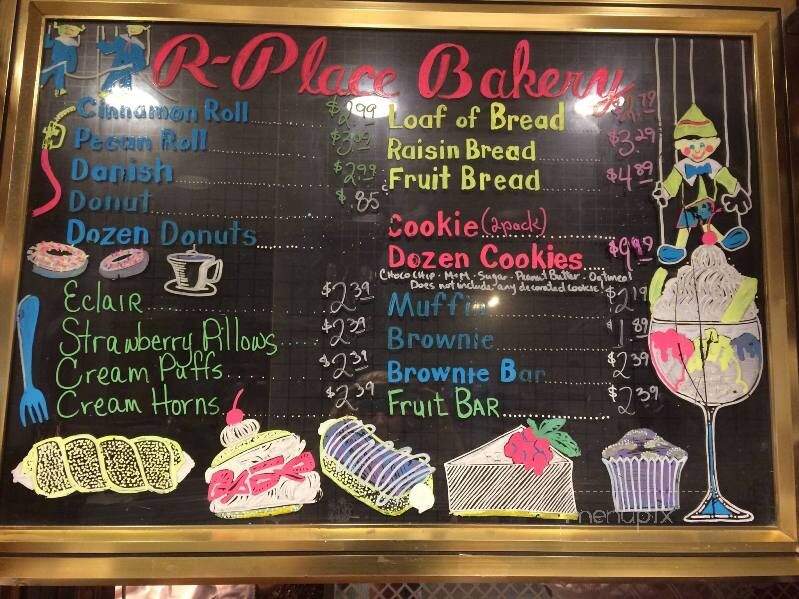 R-Place Bakery
Cinnamon Roll
Pecan Roll
Danish $2.99
Donut $.85
Dozen Donuts
Eclair $2.39
Strawberry Pillows $2.39
Cream Puffs $2.39
Cream Horns $2.39
Loaf of Bread
Raisin Bread $3.29
Fruit Bread $4.89
Cookie (2pack)
Dozen Cookies $9.99
Choco Chip - M+M - Sugar - Peanut Butter - Oatmeal
Does not include any decorated cookie!
Muffin $2.19
Brownie $1.89
Brownie Bar $2.39
Fruit Bar $2.39
menupix